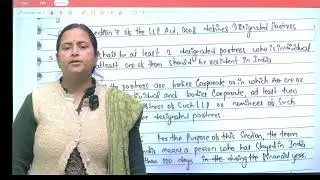 section 7 of the LLP Act, 2008 defines Designated partners
shall be at least 2 designated partners who is individual
at least one of them should be resident in India
the partners are bodies corporate or in which one or
individual and bodies corporate, at least two
of such LLP or nominees of such
are designated partners
For the purpose of this Section, the term
India means a person who has stayed in India
than 120 days in the during the financial year.